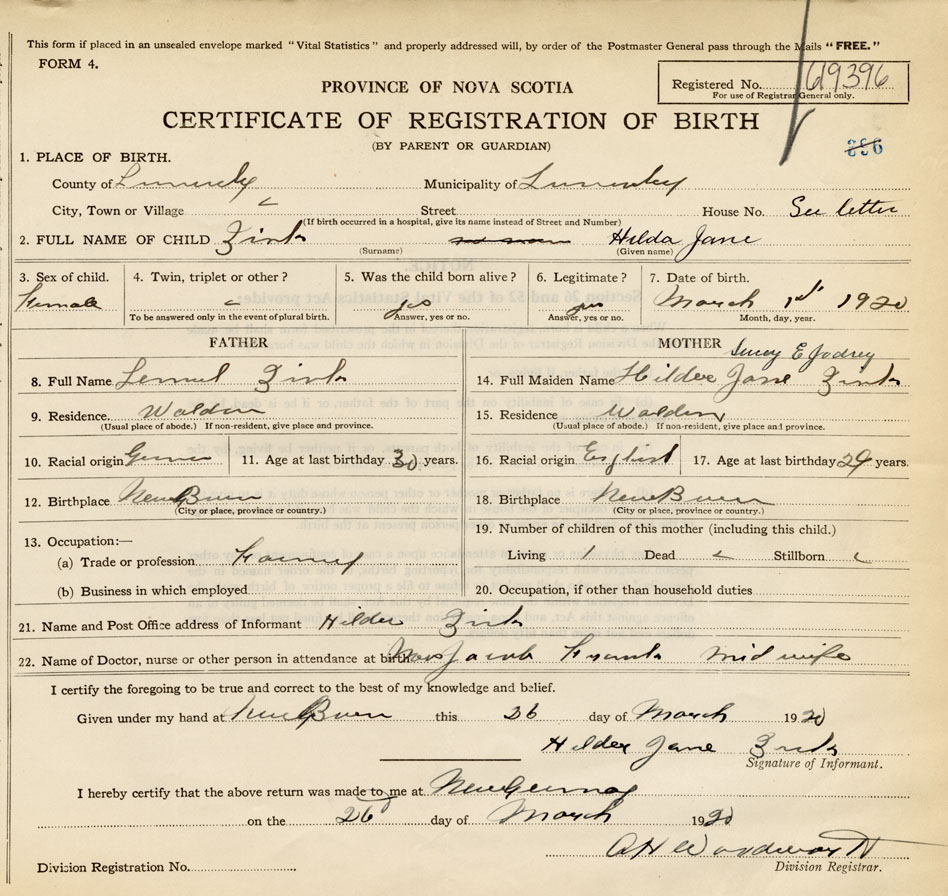 This form if placed in an unsealed envelope marked "Vital Statistics" and properly addressed will, by order of the Postmaster General pass through the Mails "FREE."
FORM 4.
PROVINCE OF NOVA SCOTIA
Registered No. 619396
For use of Registrar General only.
CERTIFICATE OF REGISTRATION OF BIRTH
(BY PARENT OR GUARDIAN)
1. PLACE OF BIRTH.
County of Municipality of
City, Town or Village Street House No. See letter
(If birth occurred in a hospital, give its name instead of Street and Number)
2. FULL NAME OF CHILD Zink Hilda Jane
(Surname) (Given name)
3. Sex of child. 4. Twin, triplet or other? 5. Was the child born alive? 6. Legitimate? 7. Date of birth.
Female yes yes March 1st 1920
To be answered only in the event of plural birth. Answer, yes or no. Answer, yes or no. Month, day, year.
FATHER MOTHER
8. Full Name Lemuel Zink 14. Full Maiden Name Hilder Jane Zink
9. Residence. Walden 15. Residence Walden
(Usual place of abode.) If non-resident, give place and province. (Usual place of abode.) If non-resident, give place and province.
10. Racial origin 11. Age at last birthday 30 years. 16. Racial origin English 17. Age at last birthday 29 years.
12. Birthplace 18. Birthplace
(City or place, province or country.) (City or place, province or country.)
13. Occupation:— 19. Number of children of this mother (including this child.)
(a) Trade or profession Living 1 Dead Stillborn
(b) Business in which employed 20. Occupation, if other than household duties
21. Name and Post Office address of Informant Hilder Zink
22. Name of Doctor, nurse or other person in attendance at birth Mrs Jacob mid wife
I certify the foregoing to be true and correct to the best of my knowledge and belief.
Given under my hand at this 26 day of March 1920
Hilder Jane Zink
Signature of Informant.
I hereby certify that the above return was made to me at New Germany
on the 26 day of March 1920
Division Registration No. Division Registrar.